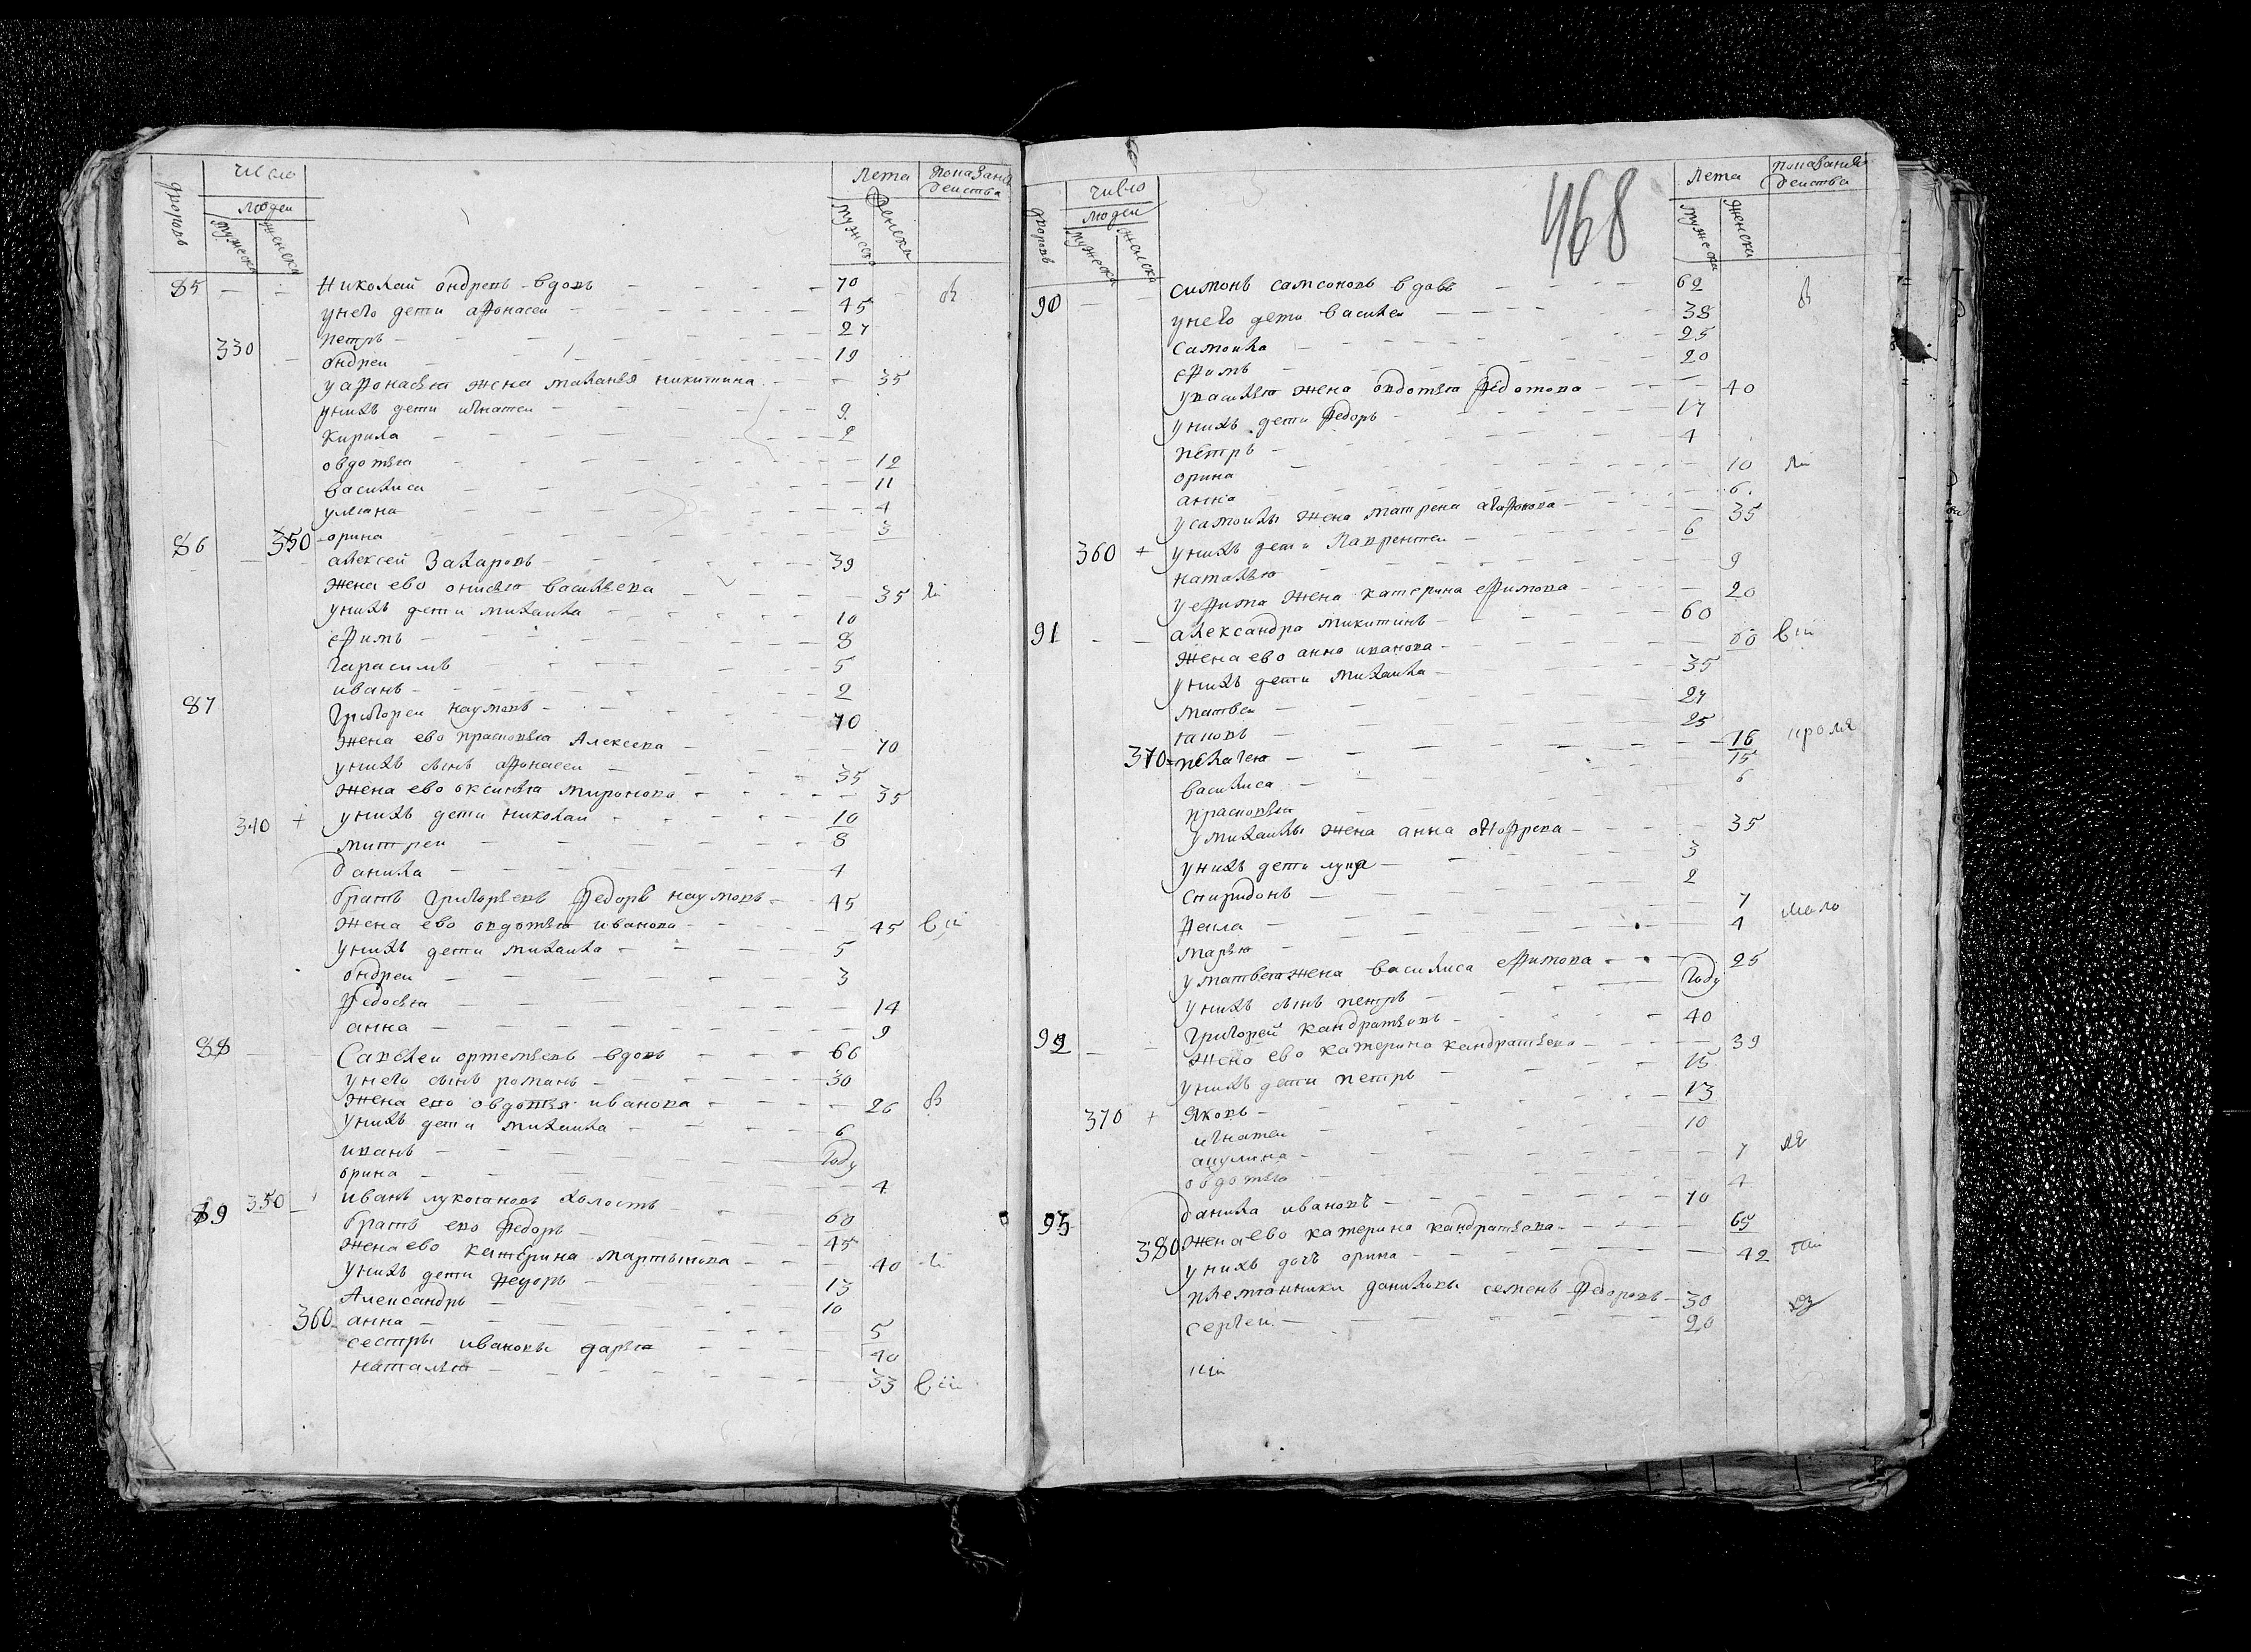 число
люден
дворовъ
мужеска
женска
Лета
мужеска
женска
Показание
действа
85 Николай андреевъ вдовъ 70
у него дети афонасеи 45
петръ 27
330 ондреи 19
у афонасья жена маланья никитина 35
у нихъ дети игнатеи 9
кирила 2
овдотья 12
василиса 11
уляна 4
350 орина 3
86 алексей Захаровъ 39
жена ево онисья васильева 35
у нихъ дети михаила 10
ефимъ 8
гарасимъ 5
иванъ 2
87 Григореи наумовъ 70
жена ево прасковья Алексеева 70
у нихъ сынъ афонасеи 35
жена ево оксинья миронова 35
340 + у нихъ дети николаи 10
митреи 8
данила 4
братъ григорьевъ федоръ наумовъ 45
жена ево овдотья иванова 45
у нихъ дети михаила 5
ондреи 3
федосья 14
анна 9
88 Савелеи ортемьевъ вдовъ 66
у него сынъ романъ 30
жена ево овдотья иванова 26
у нихъ дети михаила 6
иванъ году
орина 4
89 350 иванъ лукояновъ холостъ 60
братъ ево федоръ 45
жена ево катерина мартынова 40
у нихъ дети федоръ 13
Александръ 10
360 анна 5
сестры ивановы дарья 40
наталья 33
468
число
люден
дворовъ
мужеска
женска
Лета
мужеска
женска
Показание
действа
90 симонъ самсоновъ вдовъ 62
у него дети василеи 38
самоила 25
ефимъ 20
у василья жена овдотья федотова 40
у нихъ дети федоръ 17
петръ 4
орина 10
анна 6
у самоилы жена матрена агафонова 35
360 + у нихъ дети Лаврентеи 6
наталья 9
у ефима жена катерина ефимова 20
91 александра микитинъ 60
жена ево анна иванова 60
у нихъ дети михаила 35
матвеи 27
яковъ 25
370 пелагея 16
василиса 15
прасковья 6
у михаилы жена анна онофрева 35
у нихъ дети лука 3
спиридонъ 2
фекла 7
марья 4
у матвея жена василиса ефимова 25
у нихъ сынъ петръ году
92 григорей кандратьевъ 40
жена ево катерина кандратьева 39
у нихъ дети петръ 15
370 + Яковъ 13
игнатеи 10
акулина 7
овдотья 4
93 данила ивановъ 70
380 жена ево катерина кандратьева 65
у нихъ дочь орина 42
племянники даниловы семенъ федоровъ 30
сергеи 20